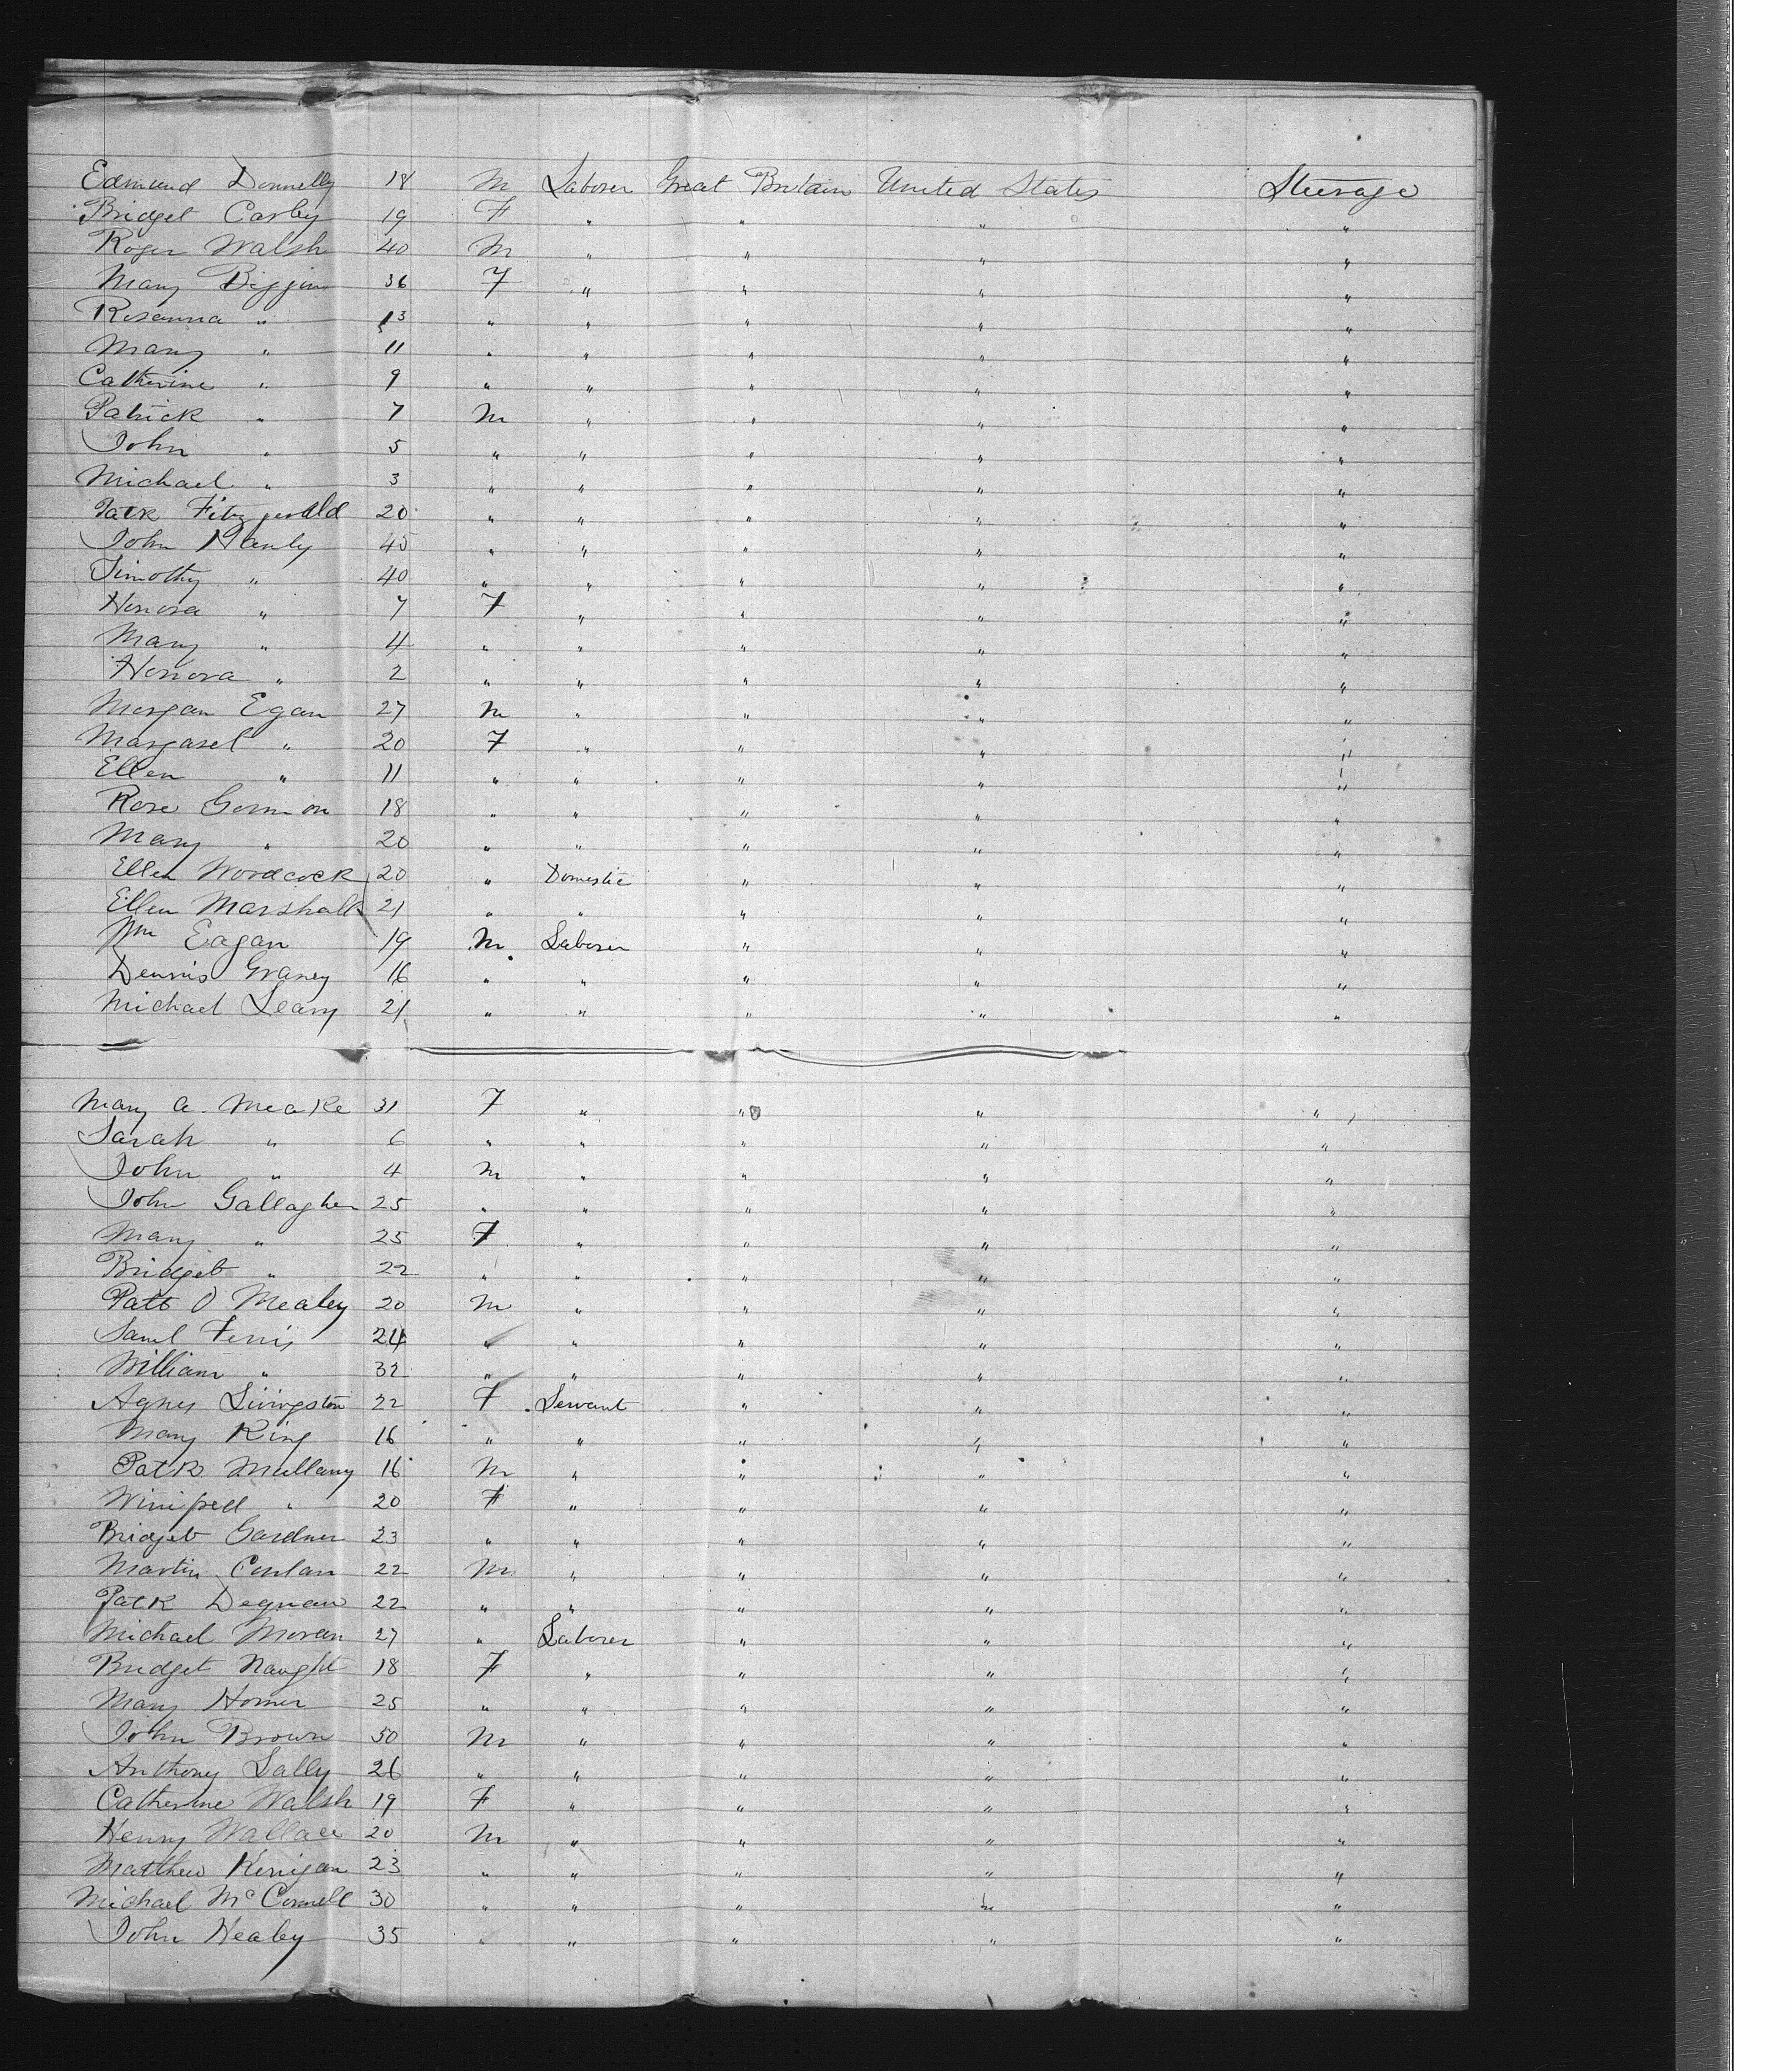 Edmund Donnelly 18 M Laborer Great Britain United States Steerage
Bridget Carley 19 F " " " "
Roger Walsh 40 M " " " "
Mary Biggin 36 F " " " "
Rosanna " 13 " " " " "
Mary " 11 " " " " "
Catherine " 9 " " " " "
Patrick " 7 M " " " "
John " 5 " " " " "
Michael " 3 " " " " "
Patk Fitzgerald 20 " " " " "
John Hanly 45 " " " " "
Timothy " 40 " " " " "
Honora " 7 F " " " "
Mary " 4 " " " " "
Honora " 2 " " " " "
Morgan Egan 27 M " " " "
Margaret " 20 F " " " "
Ellen " 11 " " " " "
Rose Gormon 18 " " " " "
Mary " 20 " " " " "
Ellen Woodcock 20 " Domestic " " "
Ellen Marshall 21 " " " " "
Wm Eagan 19 M Laborer " " "
Dennis Graney 16 " " " " "
Michael Leary 21 " " " " "
Mary A. Meake 31 F " " " "
Sarah " 6 " " " " "
John " 4 M " " " "
John Gallagher 25 " " " " "
Mary " 25 F " " " "
Bridget " 22 " " " " "
Patt O Mealey 20 M " " " "
Saml Ferris 24 " " " " "
William " 32 " " " " "
Agnes Livingston 22 F Servant " " "
Mary King 16 " " " " "
Patk Mullany 16 M " " " "
Winifred " 20 F " " " "
Bridget Gardner 23 " " " " "
Martin Conlan 22 M " " " "
Patk Degnan 22 " " " " "
Michael Moran 27 " Laborer " " "
Bridget Naught 18 F " " " "
Mary Horner 25 " " " " "
John Brown 50 M " " " "
Anthony Lally 26 " " " " "
Catherine Walsh 19 F " " " "
Henry Wallace 20 M " " " "
Matthew Kerrigan 23 " " " " "
Michael McConnell 30 " " " " "
John Healey 35 " " " " "